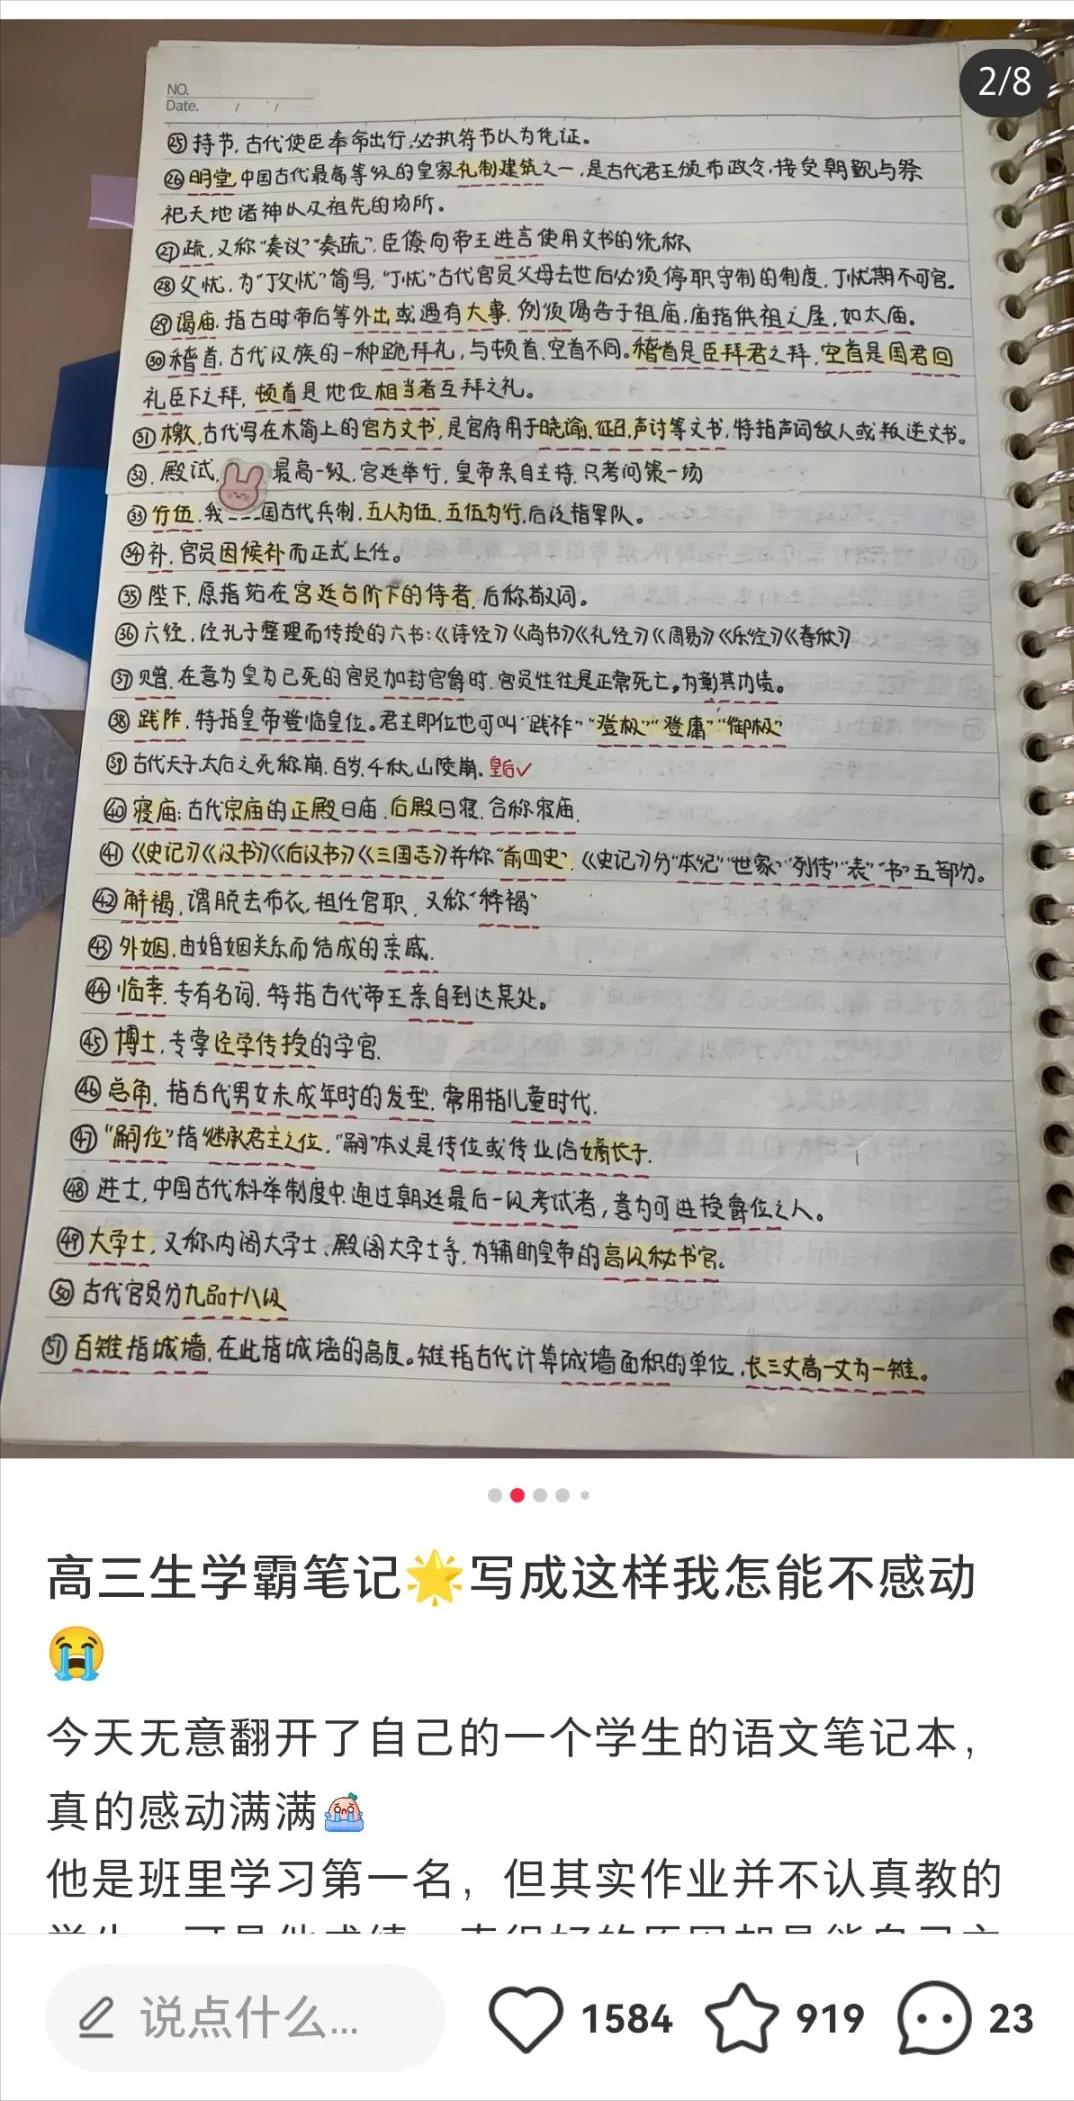 2/8
NO.
Date. / /
㉕持节,古代使臣奉命出行,必执符节以为凭证。
㉖明堂,中国古代最高等级的皇家礼制建筑之一,是古代君王颁布政令,接受朝觐与祭
祀天地诸神以及祖先的场所。
㉗疏,又称“奏议”“奏疏”,臣僚向帝王进言使用文书的统称
㉘父忧,为“丁父忧”简写,“丁忧”古代官员父母去世后必须停职守制的制度,丁忧期不可官。
㉙谒庙.指古时帝后等外出或遇有大事,例须谒告于祖庙,庙指供祖之屋,如太庙。
㉚稽首,古代汉族的一种跪拜礼,与顿首.空首不同。稽首是臣拜君之拜,空首是国君回
礼臣下之拜,顿首是地位相当者互拜之礼。
㉛檄,古代写在木简上的官方文书,是官府用于晓谕.征召.声讨等文书,特指声词敌人或叛逆文书。
㉜.殿试,最高一级,宫廷举行,皇帝亲自主持,只考问策一场
㉝行伍,我国古代兵制,五人为伍,五伍为行,后泛指军队。
㉞补,官员因候补而正式上任。
㉟陛下,原指站在宫廷台阶下的侍者,后称敬词。
㊱六经,经孔子整理而传授的六书:《诗经》《尚书》《礼经》《周易》《乐经》《春秋》
㊲赠,在意为皇为已死的官员加封官爵时,官员往往是正常死亡,为彰其功绩。
㊳践阼,特指皇帝登临皇位。君主即位也可叫“践祚”“登极”“登庸”“御极”
㊴古代天子,太后之死称崩,百岁,千秋,山陵崩.皇后✓
㊵寝庙:古代宗庙的正殿曰庙,后殿曰寝,合称寝庙.
㊶《史记》《汉书》《后汉书》《三国志》并称“前四史”,《史记》分“本纪”“世家”“列传”“表”“书”五部分。
㊷解褐,谓脱去布衣,担任官职,又称“释褐”
㊸外姻.由婚姻关系而结成的亲戚.
㊹临幸,专有名词,特指古代帝王亲自到达某处。
㊺博士,专掌经学传授的学官.
㊻总角,指古代男女未成年时的发型,常用指儿童时代.
㊼“嗣位”指继承君主之位,“嗣”本义是传位或传业给嫡长子.
㊽进士,中国古代科举制度中,通过朝廷最后一级考试者,意为可进授爵位之人。
㊾大学士,又称内阁大学士、殿阁大学士等,为辅助皇帝的高级秘书官。
㊿古代官员分九品十八级
51百雉指城墙,在此指城墙的高度。雉指古代计算城墙面积的单位,长三丈高一丈为一雉。
高三生学霸笔记🌟写成这样我怎能不感动
😭
今天无意翻开了自己的一个学生的语文笔记本,
真的感动满满
他是班里学习第一名,但其实作业并不认真教的
说点什么...
1584
919
23